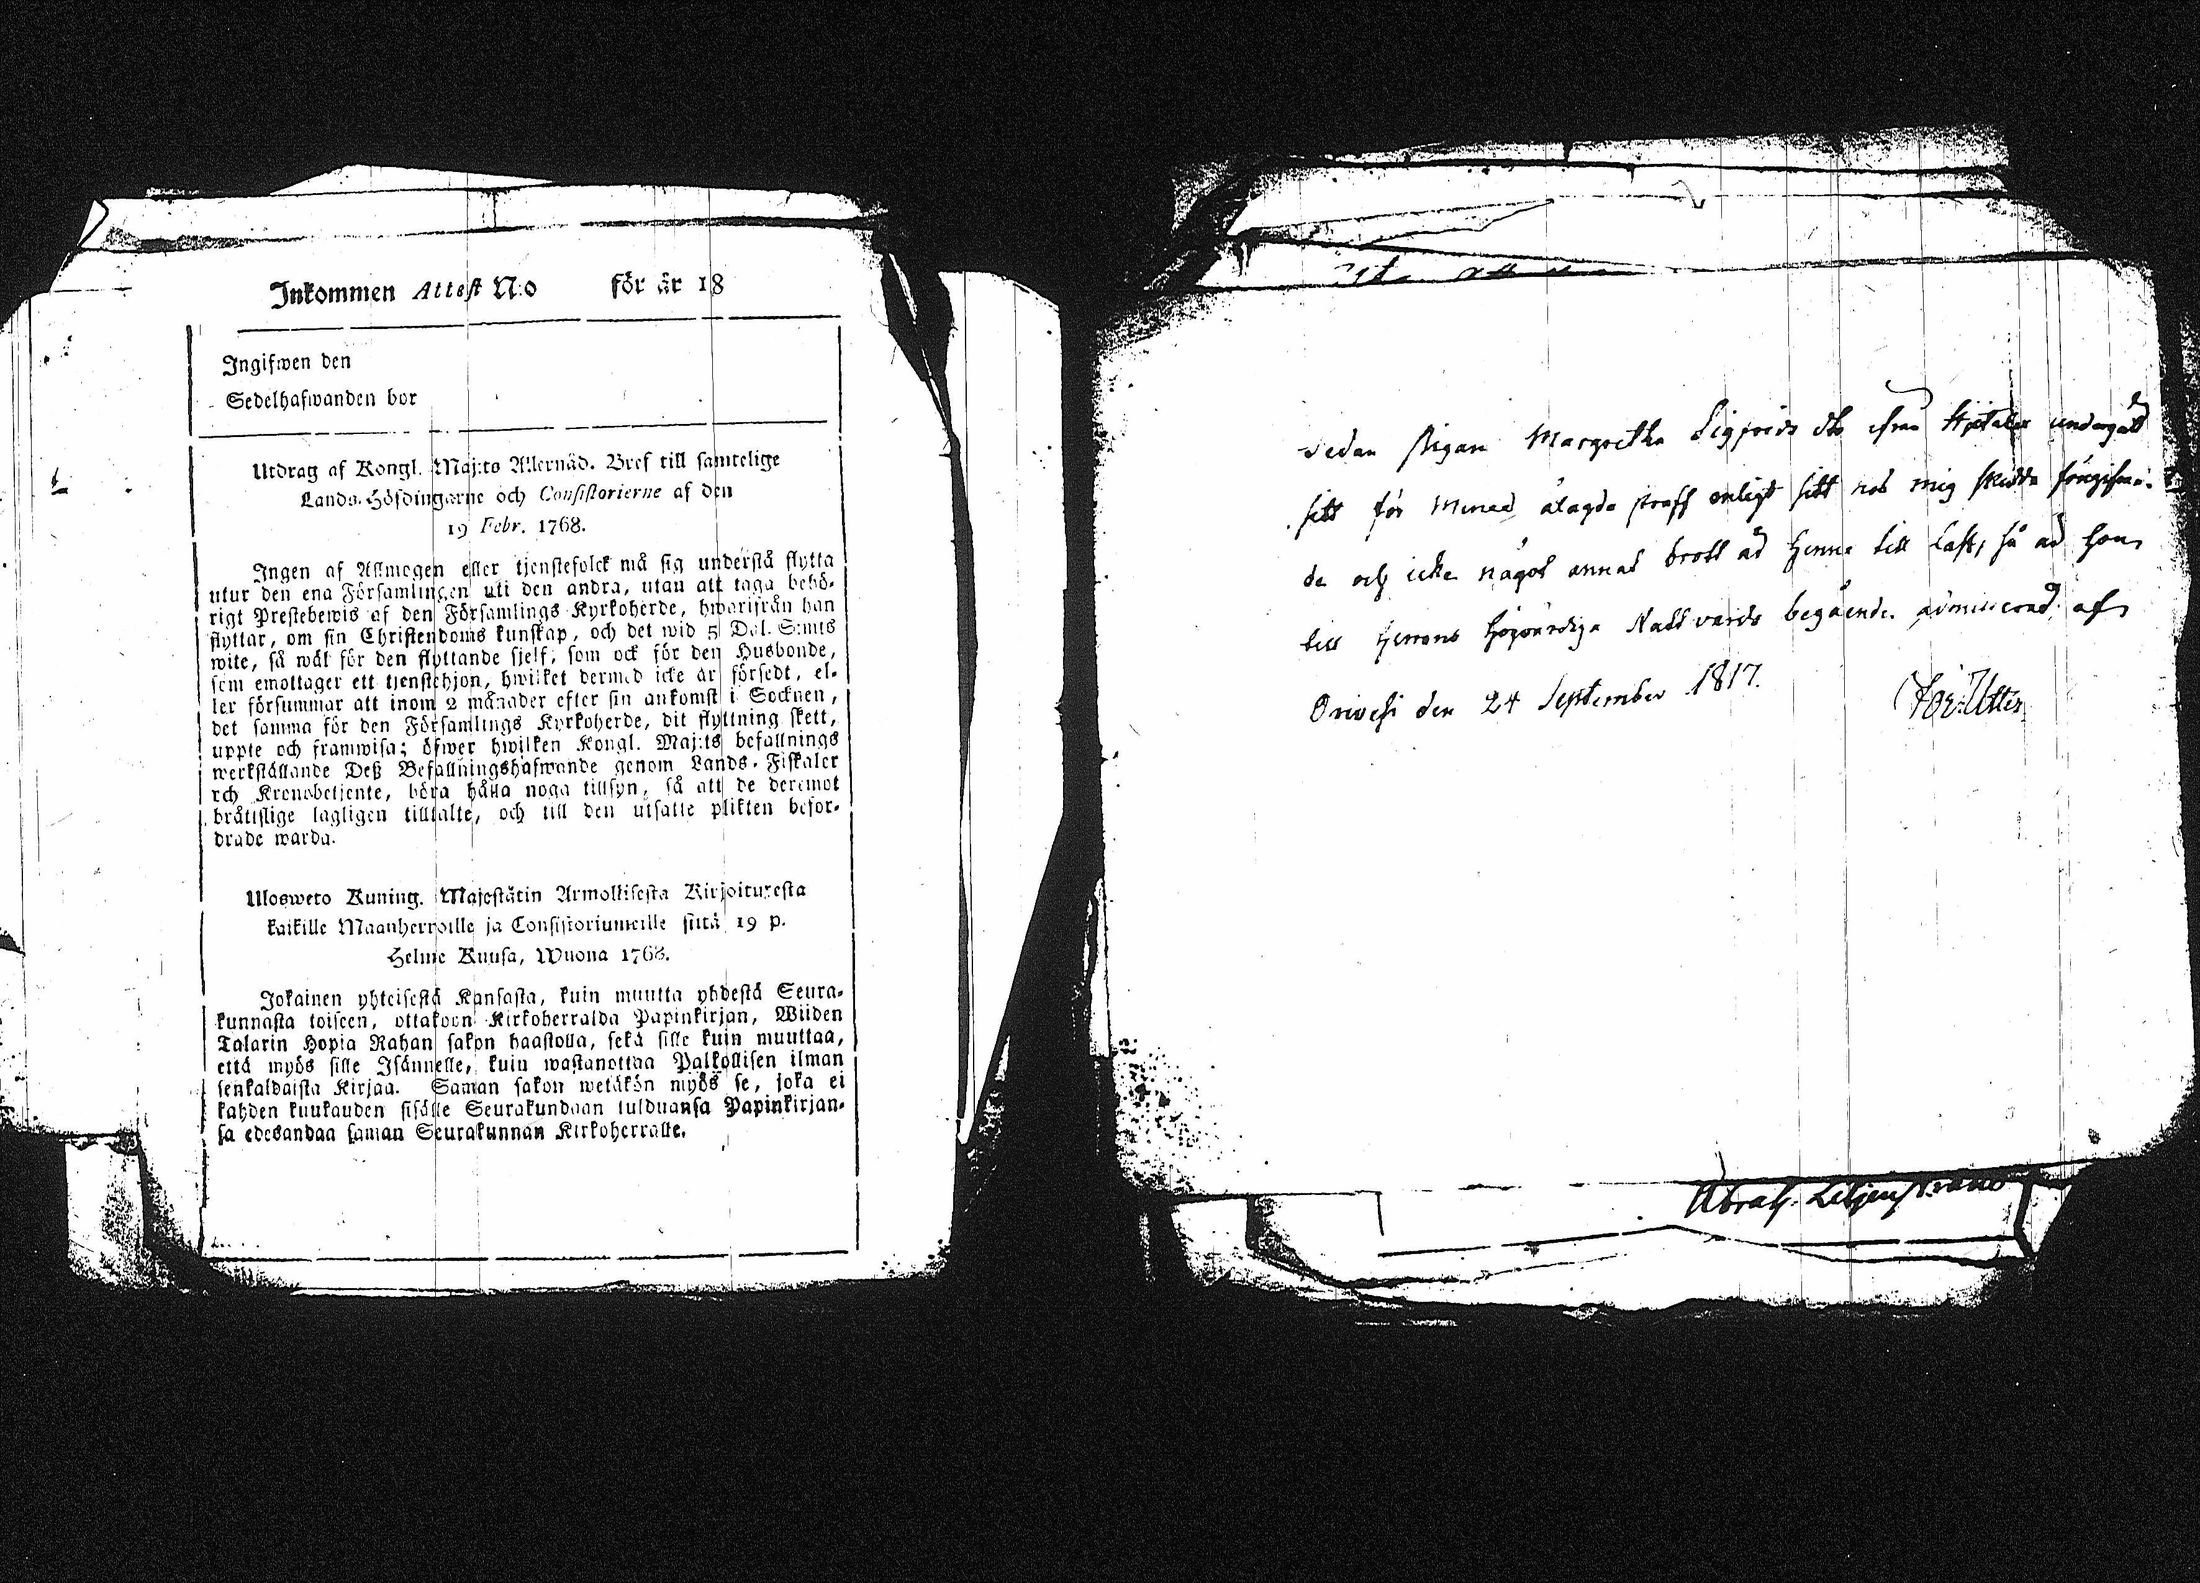 Inkommen Attest N:o för år 18
Ingifwen den
Sedelhafwanden bor
Utdrag af Kongl. Maj:ts Allernåd. Bref till samtelige
Lands-Höfdingarne och Consistorierne af den
19 Febr. 1768.
Ingen af Allmogen eller tjenstefolck må sig understå flytta
utur den ena Församlingen uti den andra, utan att taga behö-
rigt Prestebewis af den Församlings Kyrkoherde, hwarifrån han
flyttar, om sin Christendoms kunskap, och det wid 5 Dal. S:mts
wite, så wäl för den flyttande sjelf, som ock för den Husbonde,
som emottager ett tjenstehjon, hwilket dermed icke är försedt, el-
ler försummar att inom 2 månader efter sin ankomst i Socknen,
det samma för den Församlings Kyrkoherde, dit flyttning skett,
uppte och framwisa; öfwer hwilken Kongl. Maj:ts befallnings
werkställande Deß Befallningshafwande genom Lands-Fiskaler
och Kronobetjente, böra hålla noga tillsyn, så att de deremot
bråttslige lagligen tilltalte, och till den utsatte plikten befor-
drade warda.
Ulosweto Kuning. Majestätin Armollisesta Kirjoituxesta
kaikille Maanherroille ja Consistoriumeille siitä 19 p.
Helme Kuusa, Wuona 1768.
Jokainen yhteisestä Kansasta, kuin muutta yhdestä Seura-
kunnasta toiseen, ottakoon Kirkoherralda Papinkirjan, Wiiden
Talarin Hopia Rahan sakon haastolla, sekä sille kuin muuttaa,
että myös sille Isännelle, kuin wastanottaa Palkollisen ilman
senkaldaista Kirjaa. Saman sakon wetäkön myös se, joka ei
kahden kuukauden sisälle Seurakundaan tulduansa Papinkirjan-
sa edesandaa saman Seurakunnan Kirkoherralle.
Sedan Pigan Margretha Sigfrids dtr ifrån undergått
sitt för Mened ålagda straff enligt sitt hos mig
de och icke något annat brott är Henne till last, så är hon
till Herrans Högvärdiga Nattvards begående admitterad af
Orivesi den 24 September 1817.
Abrah. Liljenstrand